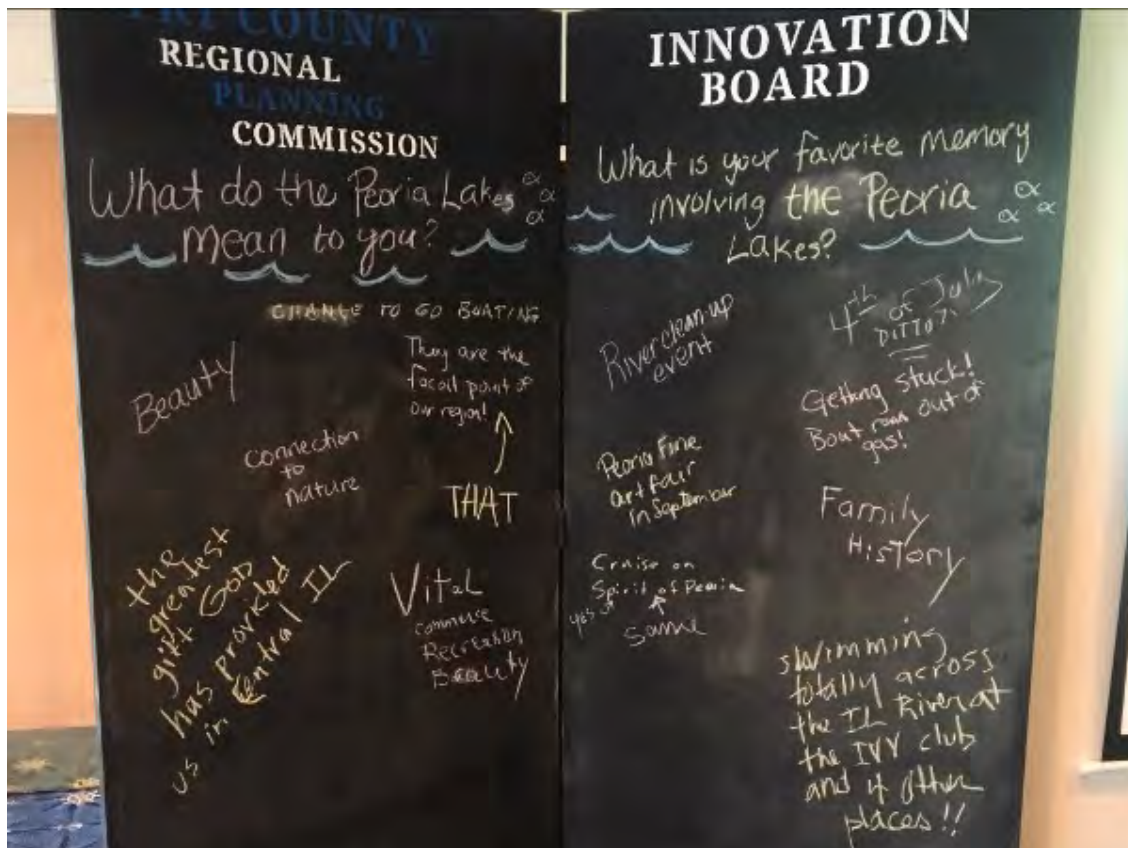 TRI COUNTY
REGIONAL
PLANNING
COMMISSION
What do the Peoria Lakes
mean to you?
CHANCE TO GO BOATING
Beauty
They are the
focal point of
our region!
connection
to
nature
THAT
the
greatest
gift God
has provided
us in Central IL
Vital
commerce
Recreation
Beauty
INNOVATION
BOARD
What is your favorite memory
involving the Peoria
Lakes?
River clean-up
event
4th of July
DITTO!
Getting stuck!
Boat ran out of
gas!
Peoria Fine
art fair
in September
Family
History
Cruise on
Spirit of Peoria
yes
Same
swimming
totally across
the IL River at
the IVY club
and 4 other
places!!